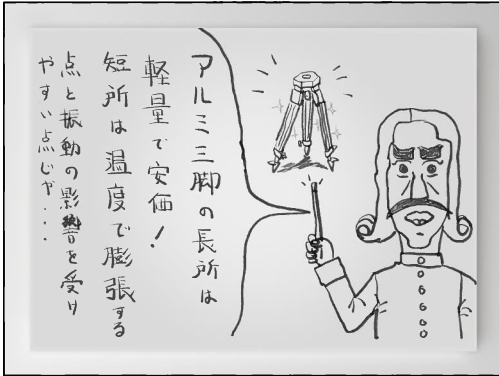 アルミ三脚の長所は
軽量で安価！
短所は温度で膨張する
点と振動の影響を受け
やすい点じゃ・・・